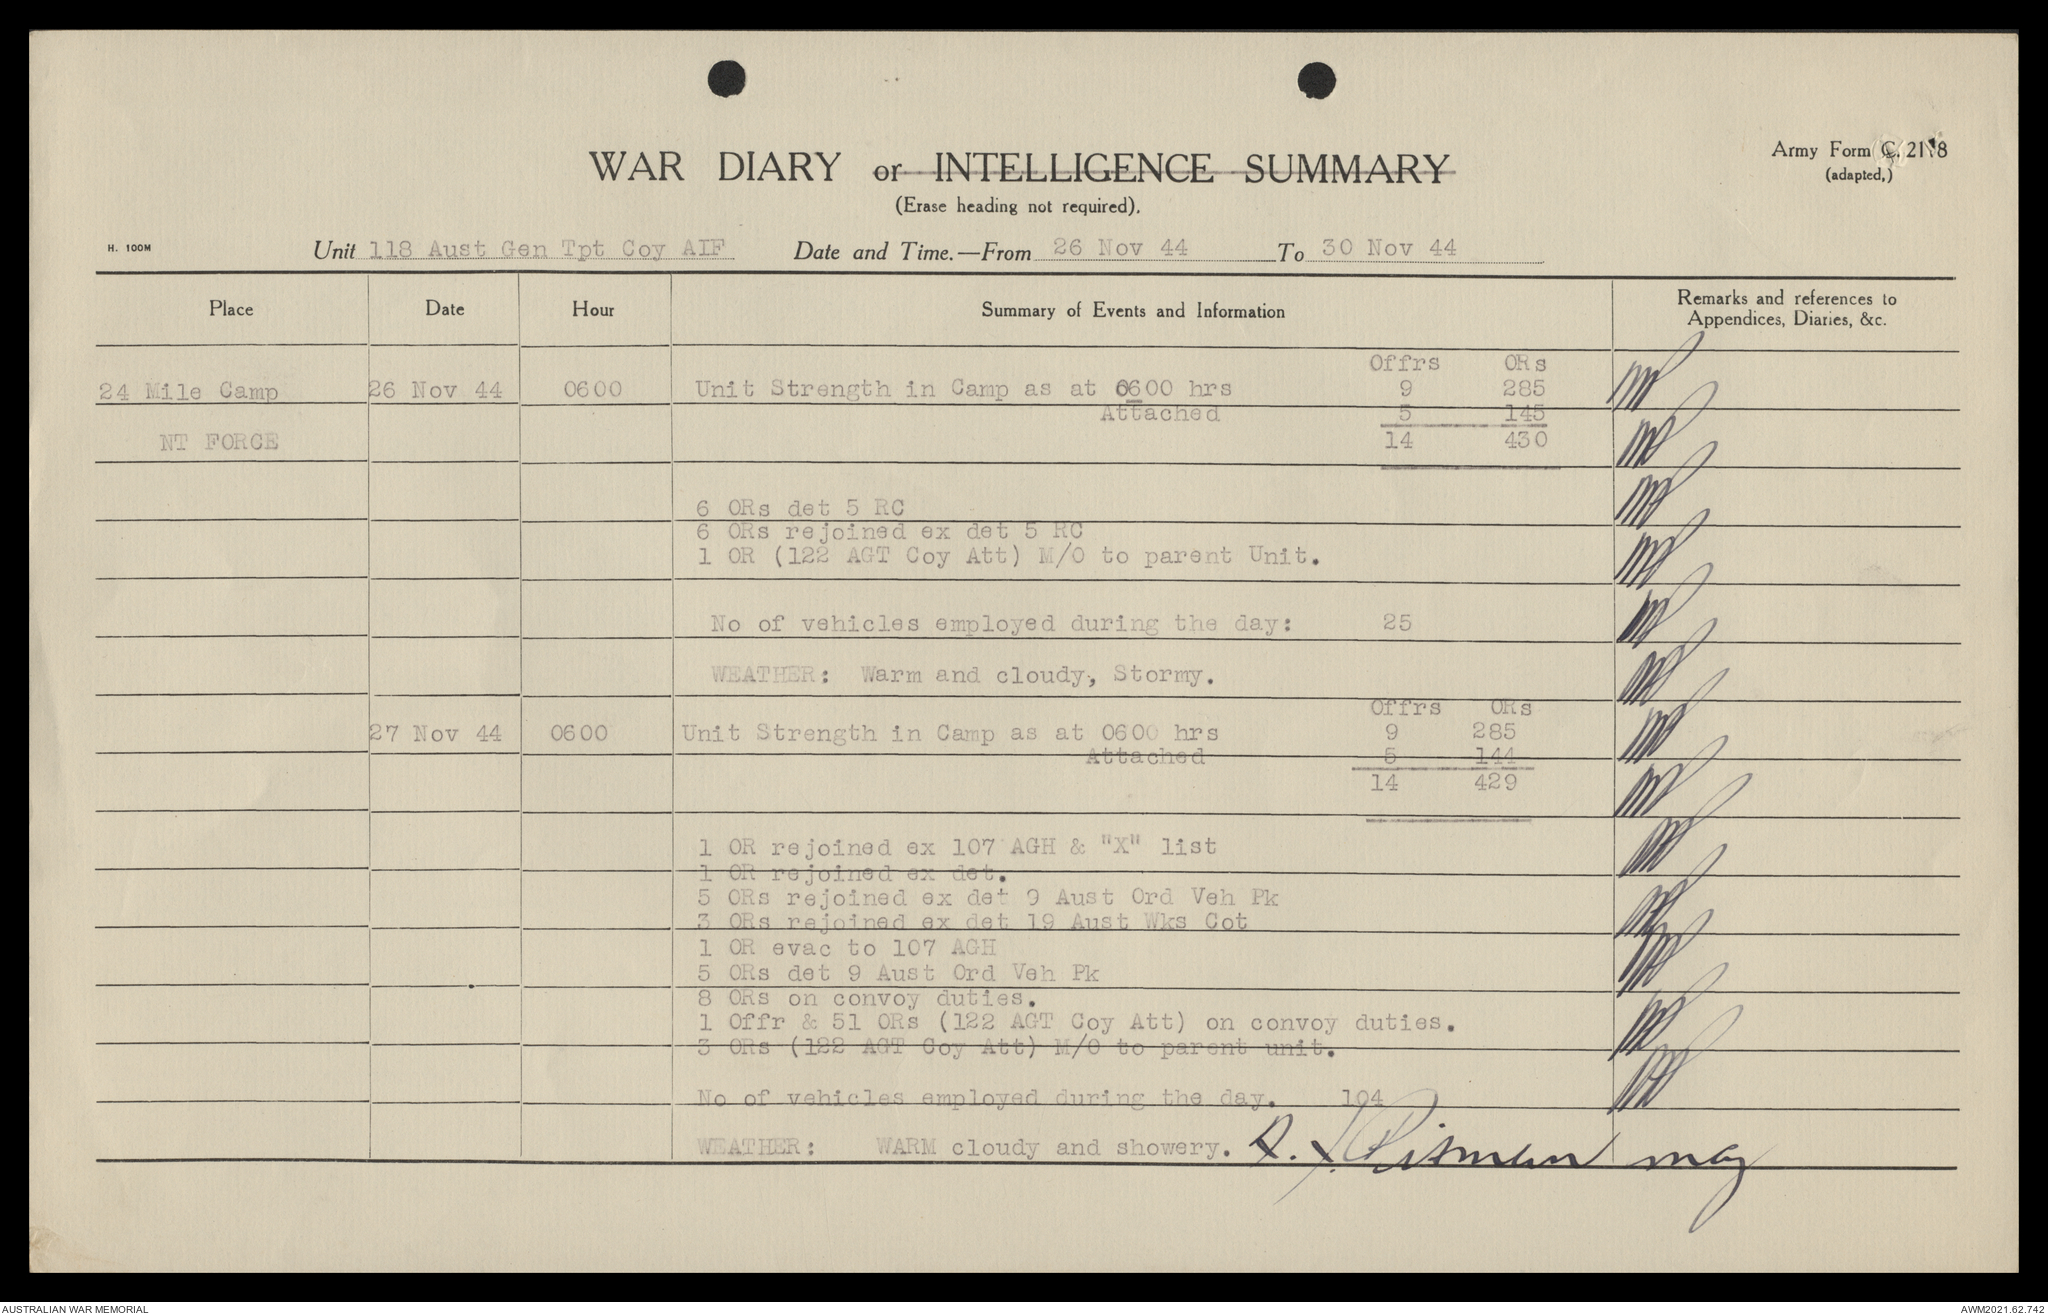 WAR DIARY or INTELLIGENCE SUMMARY
(Erase heading not required).
Army Form C. 2118
(adapted.)
H. 100M
Unit 118 Aust Gen Tpt Coy AIF Date and Time.—From 26 Nov 44 To 30 Nov 44
Place Date Hour Summary of Events and Information Remarks and references to Appendices, Diaries, &c.
Offrs ORs
24 Mile Camp 26 Nov 44 0600 Unit Strength in Camp as at 0600 hrs 9 285
Attached 5 145
NT FORCE 14 430
6 ORs det 5 RC
6 ORs rejoined ex det 5 RC
1 OR (122 AGT Coy Att) M/O to parent Unit.
No of vehicles employed during the day: 25
WEATHER: Warm and cloudy, Stormy.
Offrs ORs
27 Nov 44 0600 Unit Strength in Camp as at 0600 hrs 9 285
Attached 5 144
14 429
1 OR rejoined ex 107 AGH & "X" list
1 OR rejoined ex det.
5 ORs rejoined ex det 9 Aust Ord Veh Pk
3 ORs rejoined ex det 19 Aust Wks Cot
1 OR evac to 107 AGH
5 ORs det 9 Aust Ord Veh Pk
8 ORs on convoy duties.
1 Offr & 51 ORs (122 AGT Coy Att) on convoy duties.
3 ORs (122 AGT Coy Att) M/O to parent unit.
No of vehicles employed during the day. 104
WEATHER: WARM cloudy and showery. Pitman Maj
AUSTRALIAN WAR MEMORIAL AWM2021.62.742